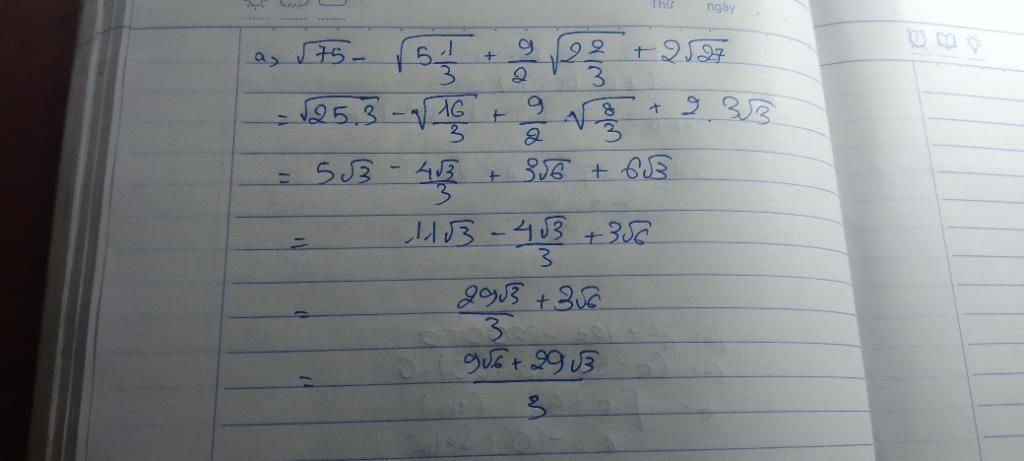 Thứ ngày
a, √75 - √(5 1/3) + 9/2 √(2 2/3) + 2√27
= √25.3 - √(16/3) + 9/2 √(8/3) + 2.3√3
= 5√3 - 4√3/3 + 3√6 + 6√3
= 11√3 - 4√3/3 + 3√6
= 29√3/3 + 3√6
= (9√6 + 29√3)/3